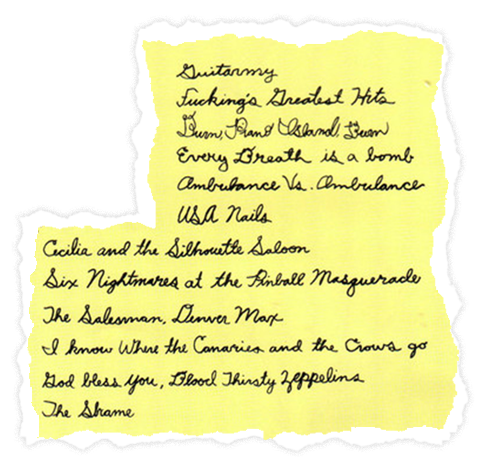 Guitarmy
Fucking's Greatest Hits
Burn, Piano Island, Burn
Every Breath is a bomb
Ambulance Vs. Ambulance
USA Nails
Cecilia and the Silhouette Saloon
Six Nightmares at the Pinball Masquerade
The Salesman, Denver Max
I know Where the Canaries and the Crows go
God bless You, Blood Thirsty Zeppelins
The Shame